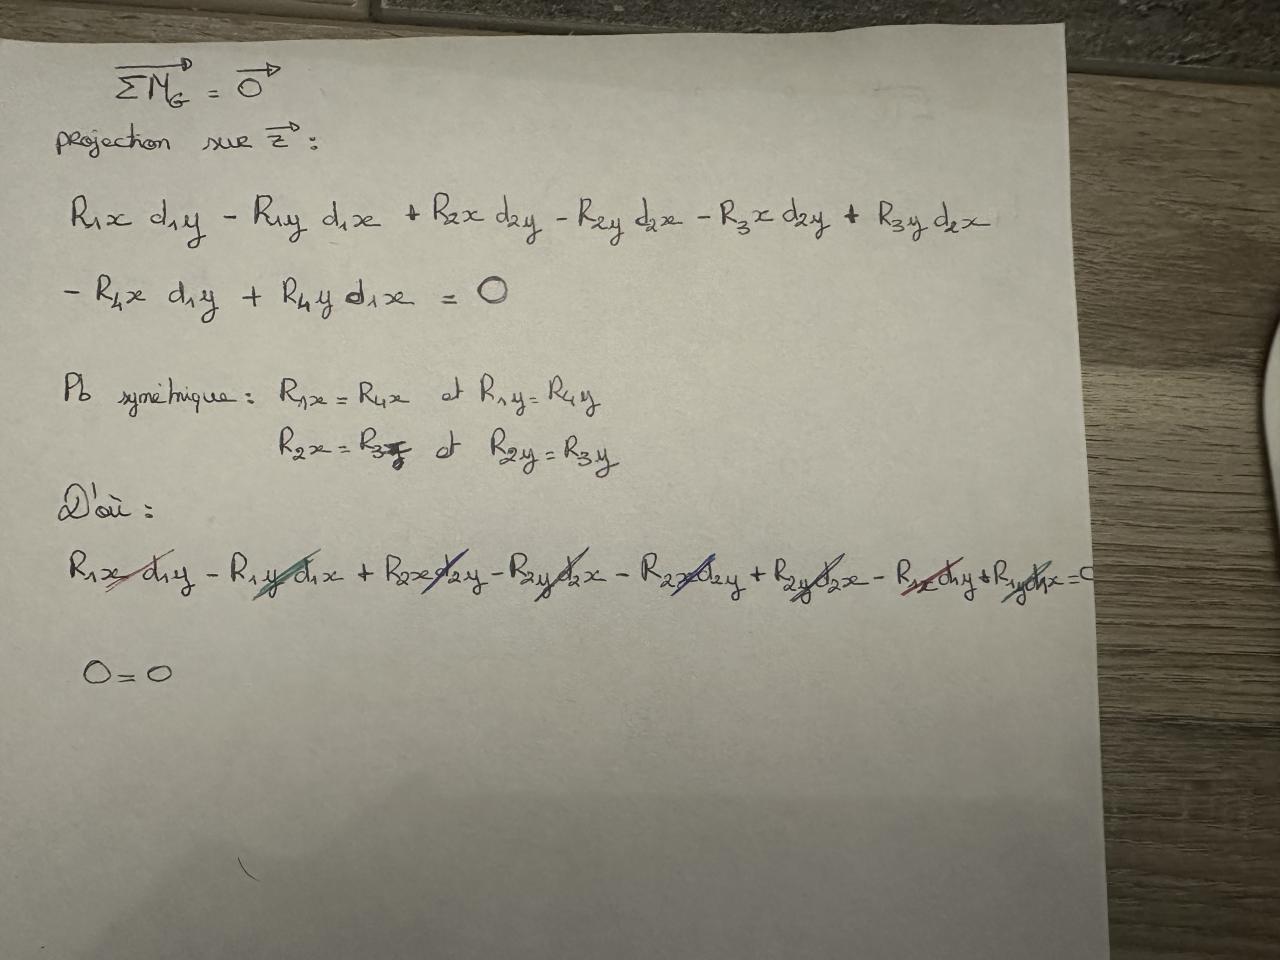 ΣM_G = 0
projection sur z :
R1x d1y - R1y d1x + R2x d2y - R2y d2x - R3x d2y + R3y d2x
- R4x d1y + R4y d1x = 0
Pb symétrique : R1x = R4x et R1y = R4y
R2x = R3x et R2y = R3y
D'où :
R1x d1y - R1y d1x + R2x d2y - R2y d2x - R2x d2y + R2y d2x - R1x d1y + R1y d1x = 0
0 = 0